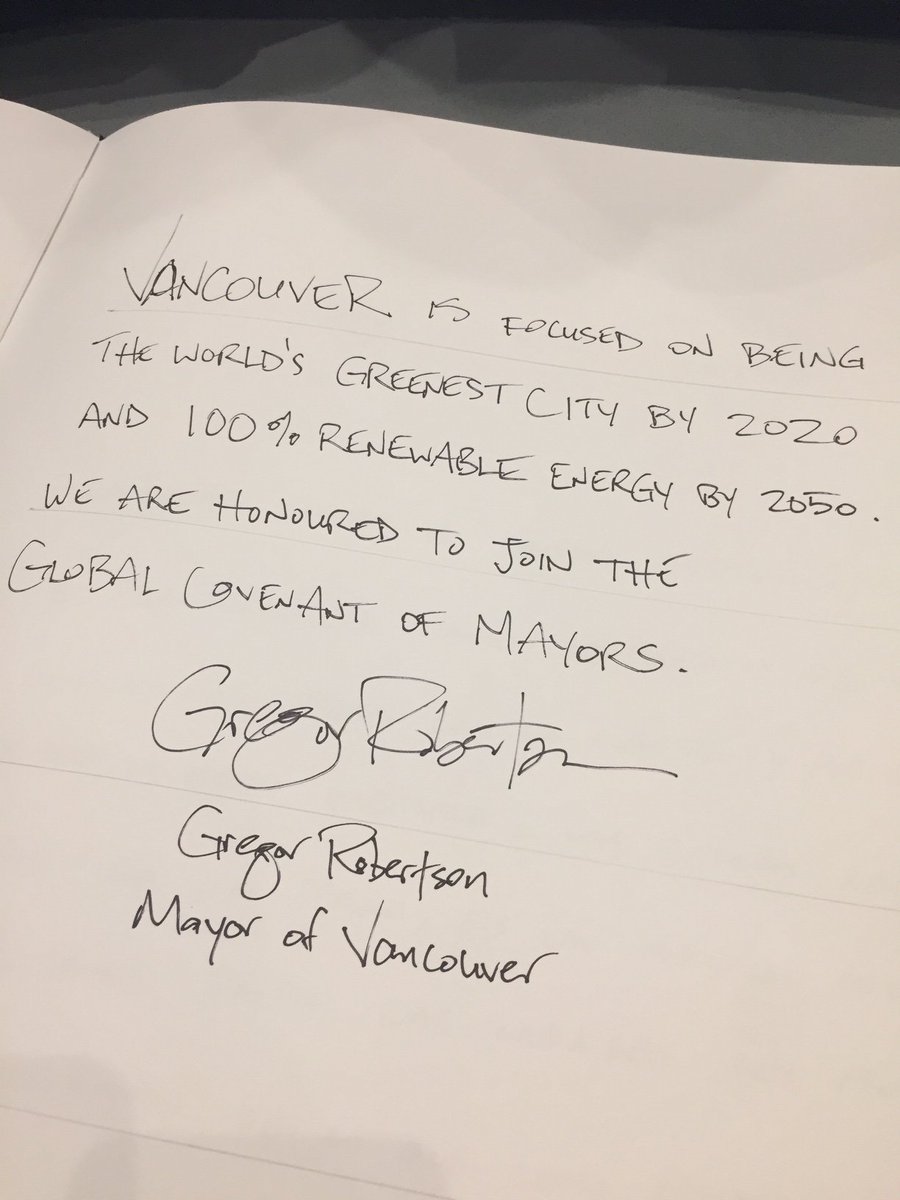 VANCOUVER IS FOCUSED ON BEING
THE WORLD'S GREENEST CITY BY 2020
AND 100% RENEWABLE ENERGY BY 2050.
WE ARE HONOURED TO JOIN THE
GLOBAL COVENANT OF MAYORS.
Gregor Robertson
Gregor Robertson
Mayor of Vancouver